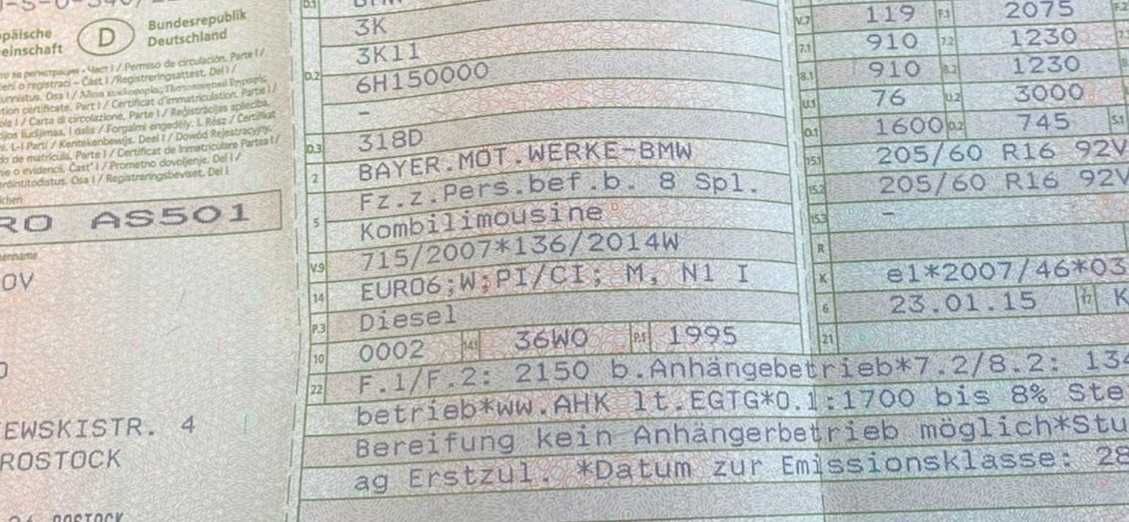 päische
einschaft
D
Bundesrepublik
Deutschland
Permiso de circulación. Parte I /
Registreringsattest. Del I /
Osa I /
Part I / Certificat d'immatriculation. Partie I /
I / Carta di circolazione. Parte I / Reģistrācijas apliecība.
liudijimas. I dalis / Forgalmi engedély. I. Rész / Ċertifikat
L-I Parti / Kentekenbewijs. Deel I / Dowód Rejestracyjny.
do de matrícula. Parte I / Certificat de Inmatriculare Partea I /
o evidencii. Časť I / Prometno dovoljenje. Del I /
Osa I / Registreringsbeviset. Del I
RO AS501
OV
EWSKISTR. 4
ROSTOCK
D.1
3K
3K11
D.2 6H150000
-
D.3 318D
2 BAYER.MOT.WERKE-BMW
Fz.z.Pers.bef.b. 8 Spl.
5 Kombilimousine
V.9 715/2007*136/2014W
14 EURO6;W;PI/CI; M, N1 I
P.3 Diesel
10 0002 14.1 36W0 P.1 1995
22 F.1/F.2: 2150 b.Anhängebetrieb*7.2/8.2: 134
betrieb*ww.AHK lt.EGTG*O.1:1700 bis 8% Ste
Bereifung kein Anhängerbetrieb möglich*Stu
ag Erstzul. *Datum zur Emissionsklasse: 28
V.7 119 F.1 2075 F.2
7.1 910 7.2 1230
8.1 910 8.2 1230
U.1 76 U.2 3000
O.1 1600 O.2 745 S.1
15.1 205/60 R16 92V
15.2 205/60 R16 92V
15.3 -
R
K e1*2007/46*03
6 23.01.15 17 K
21